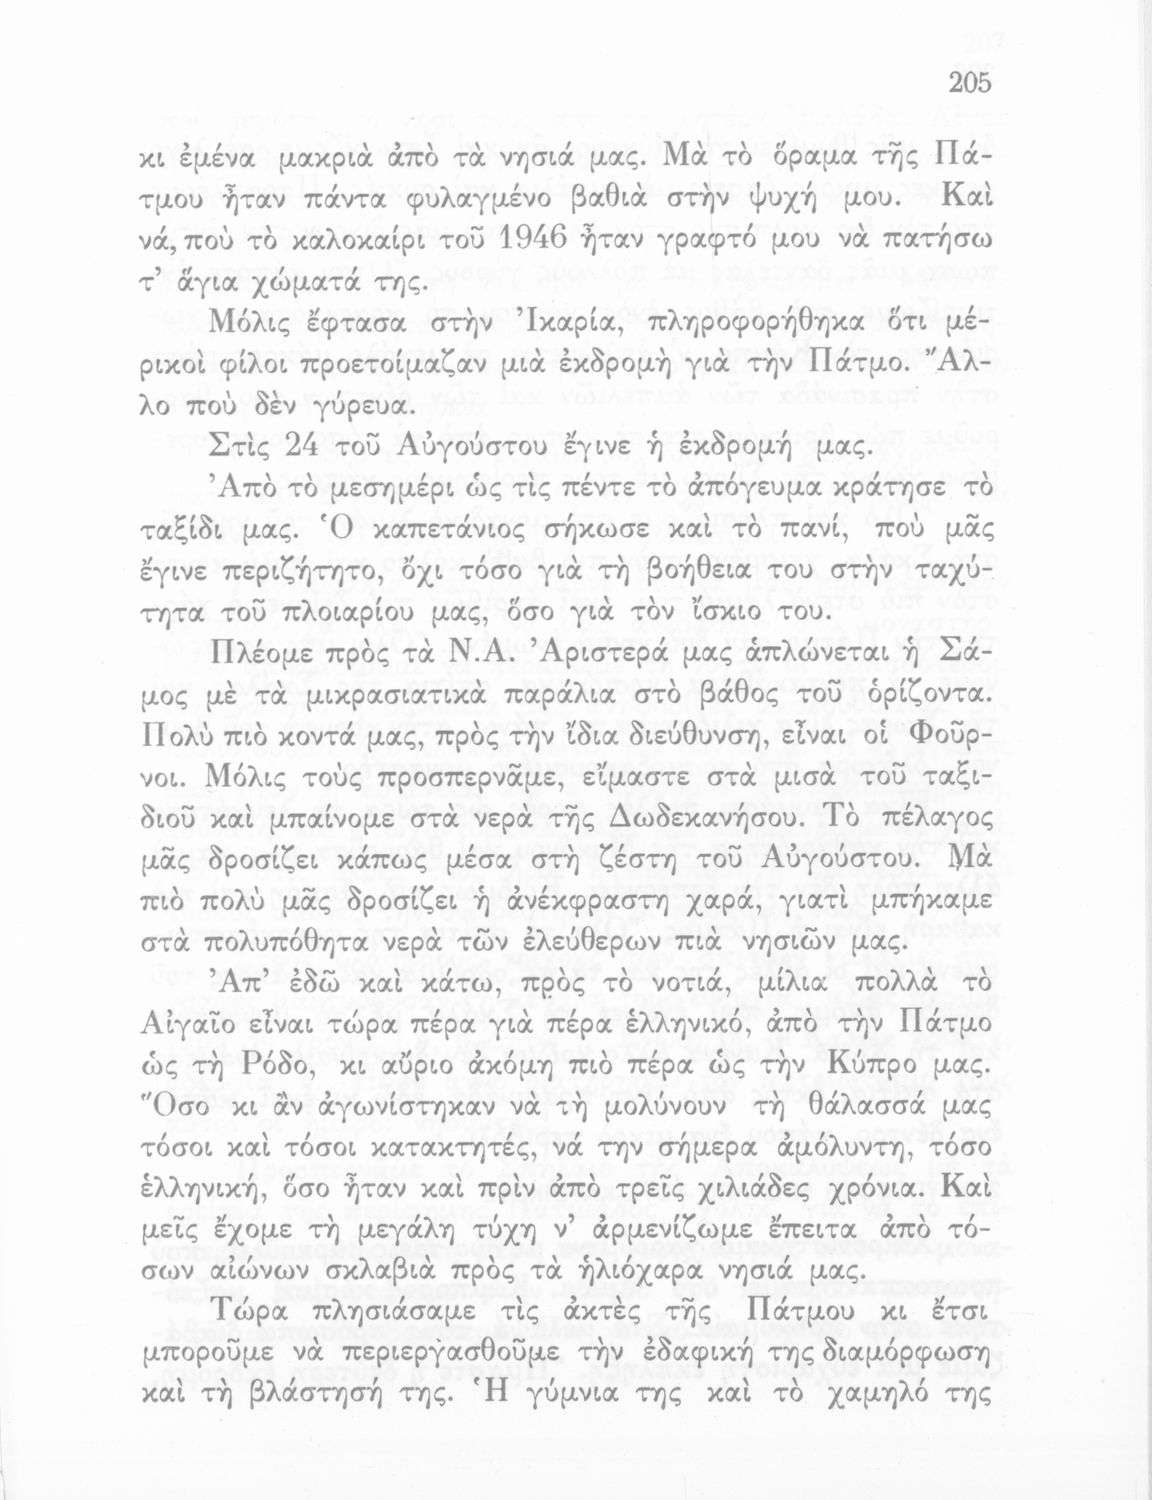 205
κι ἐμένα μακριὰ ἀπὸ τὰ νησιά μας. Μὰ τὸ ὅραμα τῆς Πά-
τμου ἦταν πάντα φυλαγμένο βαθιὰ στὴν ψυχή μου. Καὶ
νά, ποὺ τὸ καλοκαίρι τοῦ 1946 ἦταν γραφτό μου νὰ πατήσω
τ’ ἅγια χώματά της.
Μόλις ἔφτασα στὴν Ἰκαρία, πληροφορήθηκα ὅτι μέ-
ρικοὶ φίλοι προετοίμαζαν μιὰ ἐκδρομὴ γιὰ τὴν Πάτμο. Ἄλ-
λο ποὺ δὲν γύρευα.
Στὶς 24 τοῦ Αὐγούστου ἔγινε ἡ ἐκδρομή μας.
Ἀπὸ τὸ μεσημέρι ὡς τὶς πέντε τὸ ἀπόγευμα κράτησε τὸ
ταξίδι μας. Ὁ καπετάνιος σήκωσε καὶ τὸ πανί, ποὺ μᾶς
ἔγινε περιζήτητο, ὄχι τόσο γιὰ τὴ βοήθεια του στὴν ταχύ-
τητα τοῦ πλοιαρίου μας, ὅσο γιὰ τὸν ἴσκιο του.
Πλέομε πρὸς τὰ Ν.Α. Ἀριστερά μας ἁπλώνεται ἡ Σά-
μος μὲ τὰ μικρασιατικὰ παράλια στὸ βάθος τοῦ ὁρίζοντα.
Πολὺ πιὸ κοντά μας, πρὸς τὴν ἴδια διεύθυνση, εἶναι οἱ Φοῦρ-
νοι. Μόλις τοὺς προσπερνᾶμε, εἴμαστε στὰ μισὰ τοῦ ταξι-
διοῦ καὶ μπαίνομε στὰ νερὰ τῆς Δωδεκανήσου. Τὸ πέλαγος
μᾶς δροσίζει κάπως μέσα στὴ ζέστη τοῦ Αὐγούστου. Μὰ
πιὸ πολὺ μᾶς δροσίζει ἡ ἀνέκφραστη χαρά, γιατὶ μπήκαμε
στὰ πολυπόθητα νερὰ τῶν ἐλεύθερων πιὰ νησιῶν μας.
Ἀπ’ ἐδῶ καὶ κάτω, πρὸς τὸ νοτιά, μίλια πολλὰ τὸ
Αἰγαῖο εἶναι τώρα πέρα γιὰ πέρα ἑλληνικό, ἀπὸ τὴν Πάτμο
ὡς τὴ Ρόδο, κι αὔριο ἀκόμη πιὸ πέρα ὡς τὴν Κύπρο μας.
Ὅσο κι ἂν ἀγωνίστηκαν νὰ τὴ μολύνουν τὴ θάλασσά μας
τόσοι καὶ τόσοι κατακτητές, νά την σήμερα ἀμόλυντη, τόσο
ἑλληνική, ὅσο ἦταν καὶ πρὶν ἀπὸ τρεῖς χιλιάδες χρόνια. Καὶ
μεῖς ἔχομε τὴ μεγάλη τύχη ν’ ἀρμενίζωμε ἔπειτα ἀπὸ τό-
σων αἰώνων σκλαβιὰ πρὸς τὰ ἡλιόχαρα νησιά μας.
Τώρα πλησιάσαμε τὶς ἀκτὲς τῆς Πάτμου κι ἔτσι
μποροῦμε νὰ περιεργασθοῦμε τὴν ἐδαφική της διαμόρφωση
καὶ τὴ βλάστησή της. Ἡ γύμνια της καὶ τὸ χαμηλό της